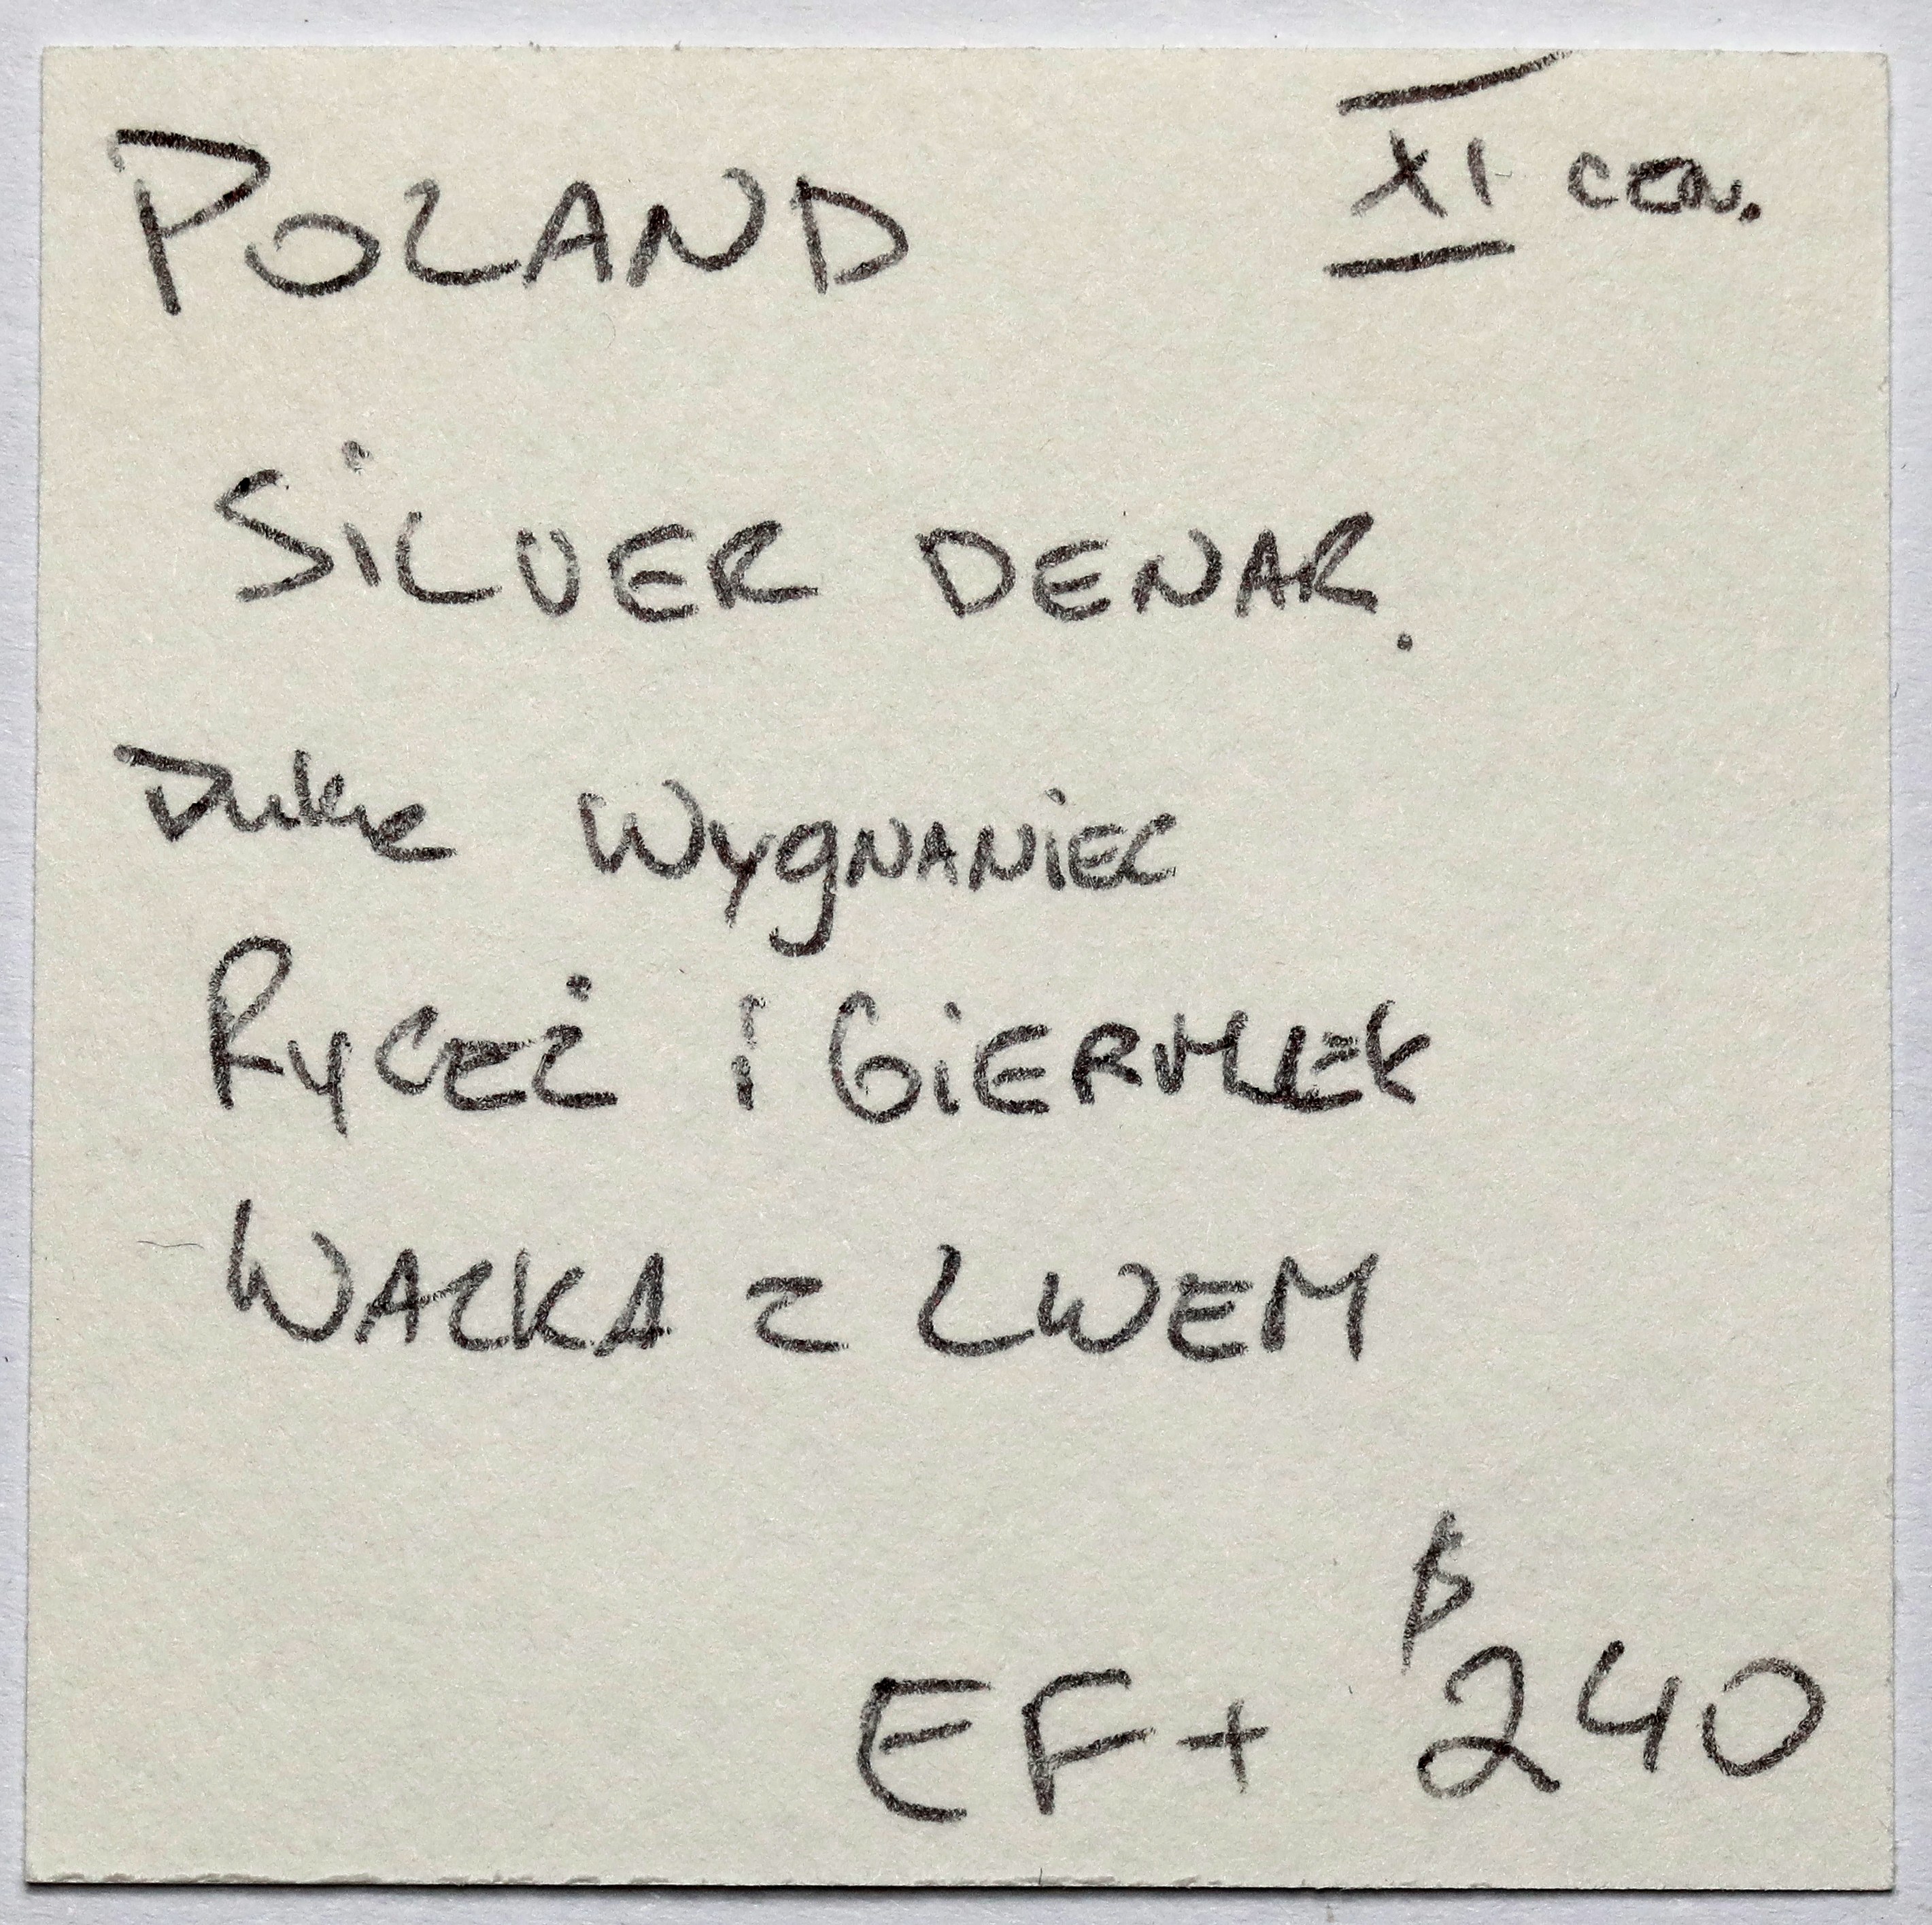 POLAND XI CEN.
SILVER DENAR.
Duke WYGNANIEC
RYCEŻ i GIERMEK
WALKA Z LWEM
EF+ $240